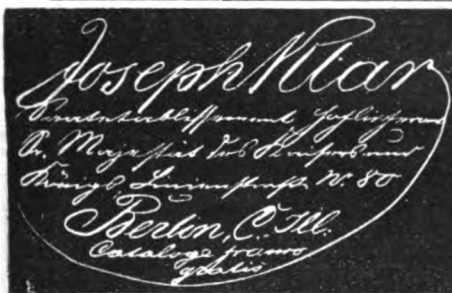 Joseph Klar
Samenetablissement Hoflieferant
Sr. Majestät des Kaisers und
Königs, Linienstraße N. 80
Berlin, C.
Cataloge franco
gratis